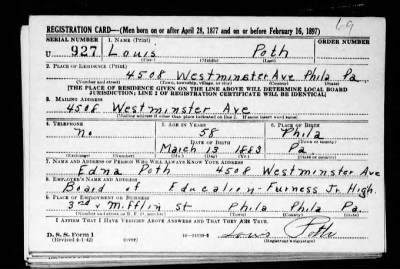 69
REGISTRATION CARD—(Men born on or after April 28, 1877 and on or before February 16, 1897)
SERIAL NUMBER 1. NAME (Print) ORDER NUMBER
U 927 Louis Poth
(First) (Middle) (Last)
2. PLACE OF RESIDENCE (Print)
4508 Westminster Ave Phila Pa
(Number and street) (Town, township, village, or city) (County) (State)
[THE PLACE OF RESIDENCE GIVEN ON THE LINE ABOVE WILL DETERMINE LOCAL BOARD
JURISDICTION; LINE 2 OF REGISTRATION CERTIFICATE WILL BE IDENTICAL]
3. MAILING ADDRESS
4508 Westminster Ave
[Mailing address if other than place indicated on line 2. If same insert word same]
4. TELEPHONE 5. AGE IN YEARS 6. PLACE OF BIRTH
no 58 Phila
DATE OF BIRTH (Town or county)
March 13 1883 Pa
(Exchange) (Number) (Mo.) (Day) (Yr.) (State or country)
7. NAME AND ADDRESS OF PERSON WHO WILL ALWAYS KNOW YOUR ADDRESS
Edna Poth 4508 Westminster Ave
8. EMPLOYER'S NAME AND ADDRESS
Board of Education - Furness Jr. High.
9. PLACE OF EMPLOYMENT OR BUSINESS
3rd & Mifflin St Phila Phila Pa.
(Number and street or R. F. D. number) (Town) (County) (State)
I AFFIRM THAT I HAVE VERIFIED ABOVE ANSWERS AND THAT THEY ARE TRUE.
D. S. S. Form 1
(Revised 4-1-42) (over) Louis Poth
(Registrant's signature)